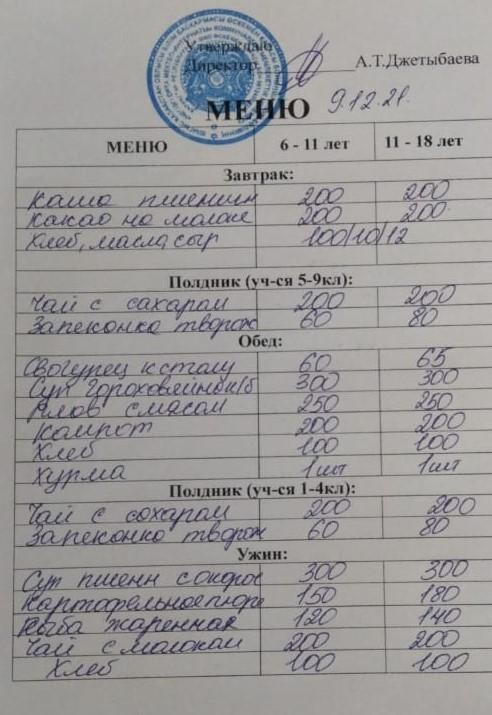 Утверждаю
Директор А.Т.Джетыбаева
МЕНЮ 9.12.21.
МЕНЮ 6 - 11 лет 11 - 18 лет
Завтрак:
Каша пшеничн 200 200
Какао на молоке 200 200
Хлеб, масла, сыр 100/10/12
Полдник (уч-ся 5-9кл):
Чай с сахаром 200 200
Запеконка творож 60 80
Обед:
к столу 60 65
Суп гороховый 300 300
Плов с мясом 250 250
Компот 200 200
Хлеб 100 100
Хурма 1шт 1шт
Полдник (уч-ся 1-4кл):
Чай с сохаром 200 200
Запеконко творож 60 80
Ужин:
Суп пшенн 300 300
Картофельное пюре 150 180
Рыба жаренная 120 140
Чай с молоком 200 200
Хлеб 100 100